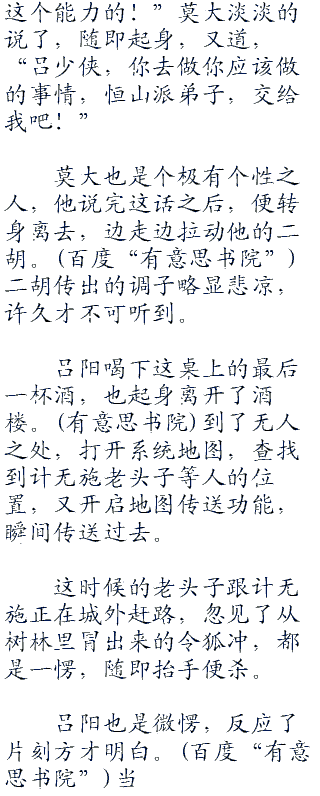 这个能力的！”莫大淡淡的
说了，随即起身，又道，
“吕少侠，你去做你应该做
的事情，恒山派弟子，交给
我吧！”
莫大也是个极有个性之
人，他说完这话之后，便转
身离去，边走边拉动他的二
胡。(百度“有意思书院”)
二胡传出的调子略显悲凉，
许久才不可听到。
吕阳喝下这桌上的最后
一杯酒，也起身离开了酒
楼。(有意思书院)到了无人
之处，打开系统地图，查找
到计无施老头子等人的位
置，又开启地图传送功能，
瞬间传送过去。
这时候的老头子跟计无
施正在城外赶路，忽见了从
树林里冒出来的令狐冲，都
是一愣，随即抬手便杀。
吕阳也是微愣，反应了
片刻方才明白。(百度“有意
思书院”)当